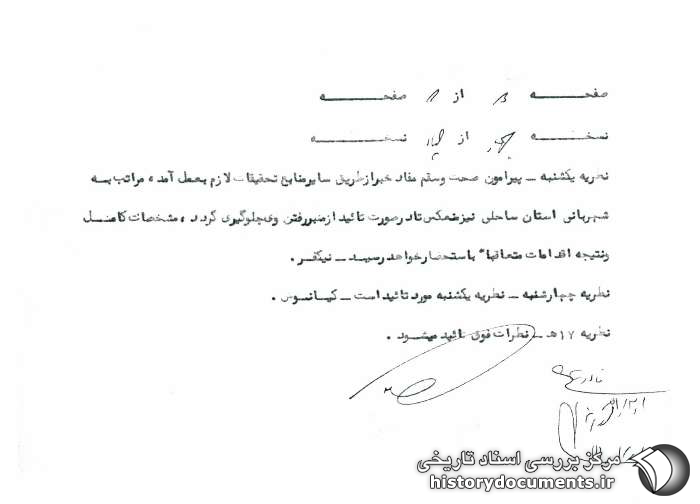 صفحه از صفحه
نسخه از نسخه
نظریه یکشنبه ـ پیرامون صحت وسقم مفاد خبر ازطریق سایر منابع تحقیقات لازم بعمل آمده مراتب به
شهربانی استان ساحلی نیز منعکس تا در صورت تائید از منبر رفتن وی جلوگیری گردد ، مشخصات کامل
ونتیجه اقدامات متعاقبا" باستحضار خواهد رسید ـ نیکفر .
نظریه چهارشنبه ـ نظریه یکشنبه مورد تائید است ـ کیانوس .
نظریه ۱۷ هـ ـ نظرات فوق تائید میشود .
مرکز بررسی اسناد تاریخی
historydocuments.ir